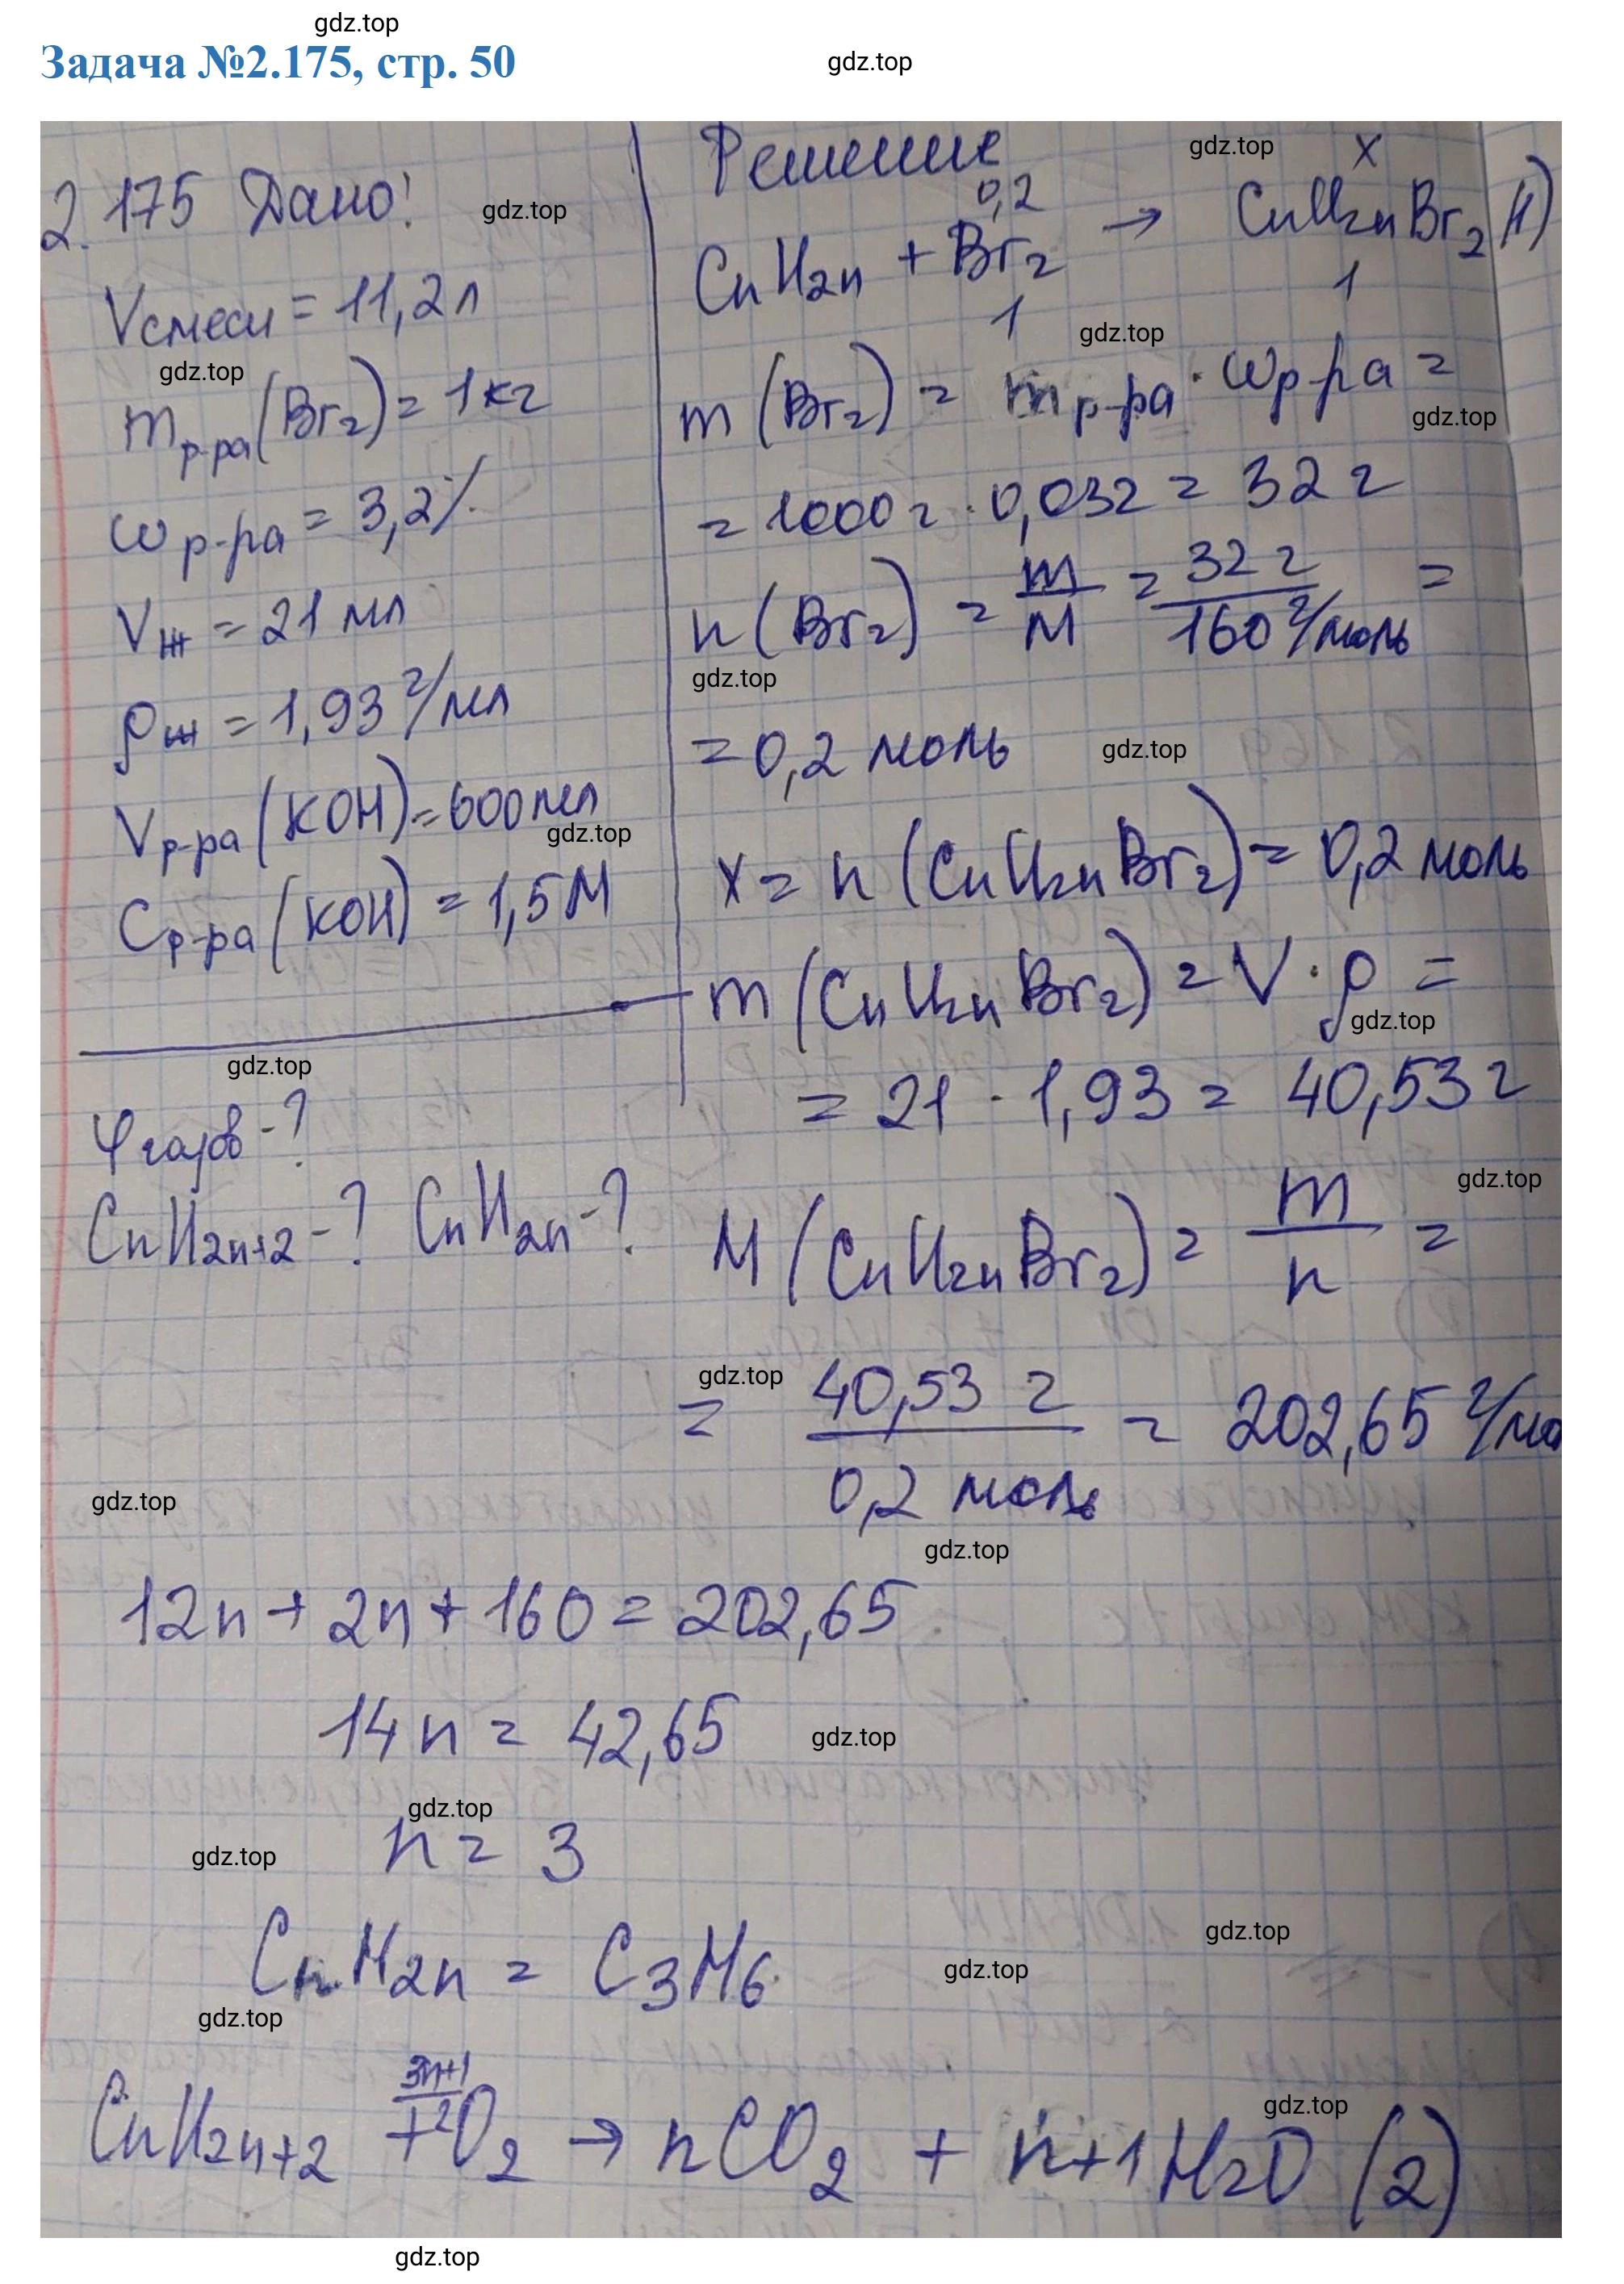 gdz.top
Задача №2.175, стр. 50
gdz.top
2.175 Дано!
gdz.top
Vсмеси = 11,2 л
gdz.top
m р-ра (Br₂) = 1 кг
ω р-ра = 3,2%
V ж = 21 мл
ρ ж = 1,93 г/мл
V р-ра (KOH) = 600 мл
gdz.top
C р-ра (KOH) = 1,5 M
gdz.top
φ газов - ?
CnH2n+2 - ? CnH2n - ?
Решение
gdz.top
0,2 x
CnH2n + Br₂ → CnH2nBr₂ (1)
1 1
gdz.top
m (Br₂) = m р-ра · ω р-ра =
gdz.top
= 1000 г · 0,032 = 32 г
n (Br₂) = m/M = 32 г / 160 г/моль =
gdz.top
= 0,2 моль
gdz.top
x = n (CnH2nBr₂) = 0,2 моль
m (CnH2nBr₂) = V · ρ =
gdz.top
= 21 · 1,93 = 40,53 г
gdz.top
M (CnH2nBr₂) = m/n =
gdz.top
= 40,53 г / 0,2 моль = 202,65 г/мо
gdz.top
gdz.top
12n + 2n + 160 = 202,65
14n = 42,65
gdz.top
gdz.top
n = 3
gdz.top
gdz.top
CnH2n = C₃H₆
gdz.top
gdz.top
gdz.top
CnH2n+2 + 3n+1/2 O₂ → nCO₂ + n+1 H₂O (2)
gdz.top